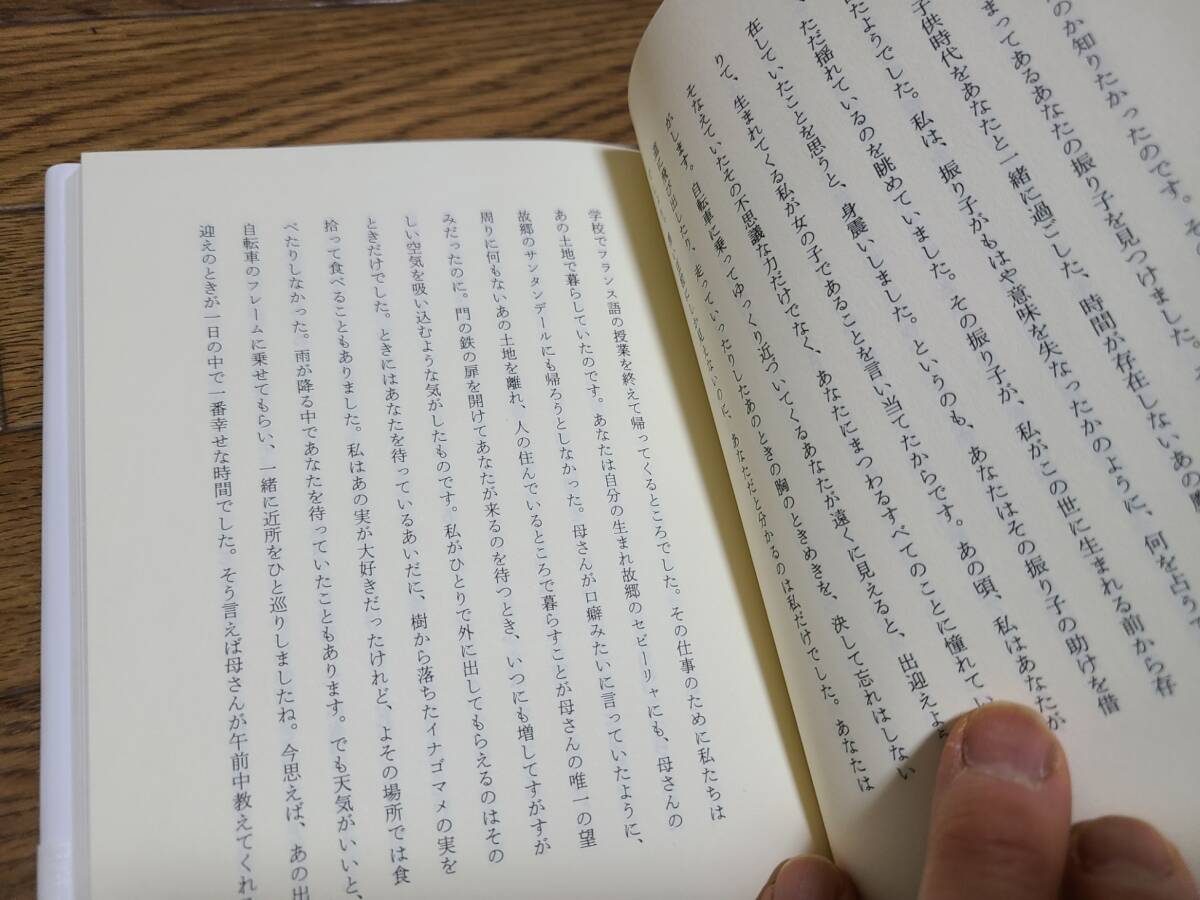 のか知りたかったのです。そ
まってあるあなたの振り子を見つけました。
子供時代をあなたと一緒に過ごした、時間が存在しないあの
たようでした。私は、振り子がもはや意味を失なったかのように、何を占うで
ただ揺れているのを眺めていました。その振り子が、私がこの世に生まれる前から存
在していたことを思うと、身震いしました。というのも、あなたはその振り子の助けを借
りて、生まれてくる私が女の子であることを言い当てたからです。あの頃、私はあなたが
そなえていたその不思議な力だけでなく、あなたにまつわるすべてのことに憧れてい
がします。自転車に乗ってゆっくり近づいてくるあなたが遠くに見えると、出迎えよう
道に飛び出したり、走っていったりしたあのときの胸のときめきを、決して忘れはしない
しか見えないのに、あなただと分かるのは私だけでした。あなたは
学校でフランス語の授業を終えて帰ってくるところでした。その仕事のために私たちは
あの土地で暮らしていたのです。あなたは自分の生まれ故郷のセビーリャにも、母さんの
故郷のサンタンデールにも帰ろうとしなかった。母さんが口癖みたいに言っていたように、
周りに何もないあの土地を離れ、人の住んでいるところで暮らすことが母さんの唯一の望
みだったのに。門の鉄の扉を開けてあなたが来るのを待つとき、いつにも増してすがすが
しい空気を吸い込むような気がしたものです。私がひとりで外に出してもらえるのはその
ときだけでした。ときにはあなたを待っているあいだに、樹から落ちたイナゴマメの実を
拾って食べることもありました。私はあの実が大好きだったけれど、よその場所では食
べたりしなかった。雨が降る中であなたを待っていたこともあります。でも天気がいいと、
自転車のフレームに乗せてもらい、一緒に近所をひと巡りしましたね。今思えば、あの出
迎えのときが一日の中で一番幸せな時間でした。そう言えば母さんが午前中教えてくれ